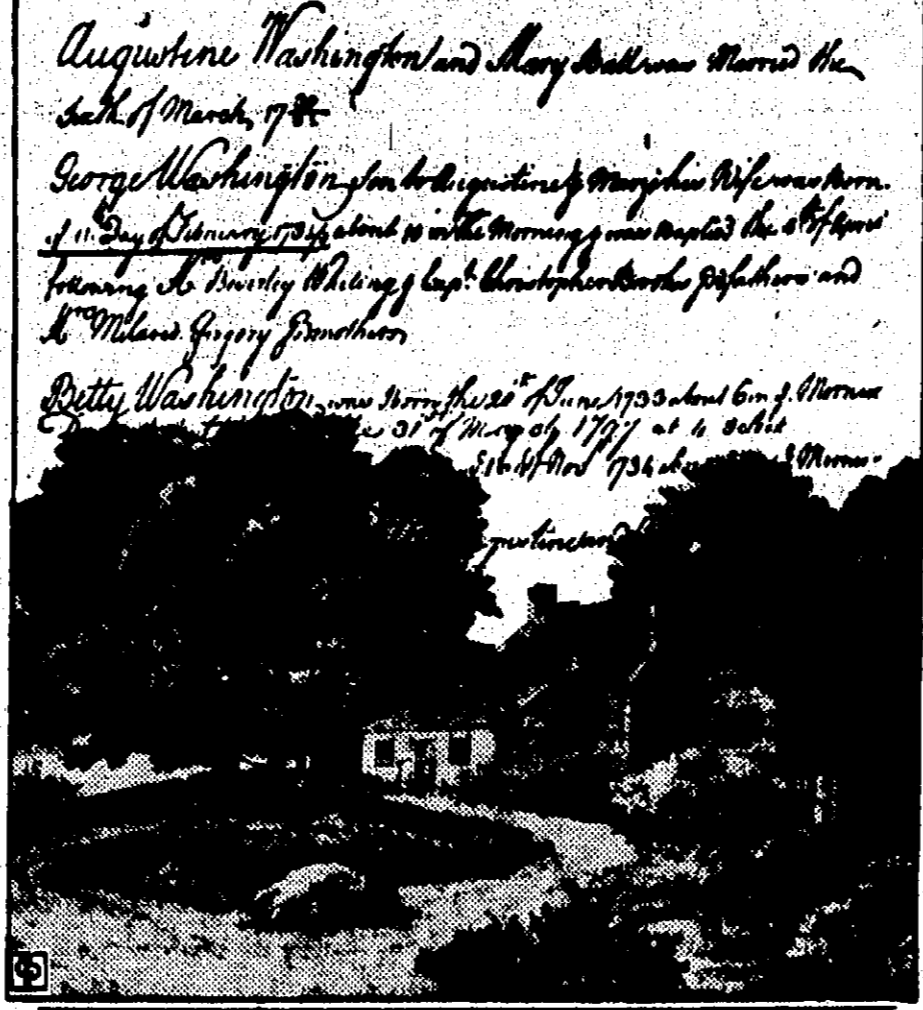 Augustine Washington and Mary Ball was Married the
Sixth of March, 17
George Washington Son to Augustine & Mary his Wife was Born
yᵉ 11 Day of February 173½ about 10 in the Morning & was Baptised the 5th of April
following Mr Beverley Whiting & Capt. Christopher Brooks Godfathers and
Mrs Mildred Gregory Godmother
Betty Washington was Born the 20th of June 1733 about 6 in yᵉ Morning
the 31 of March 1797 at 4 oClock
of Nov 1734 yᵉ Morning